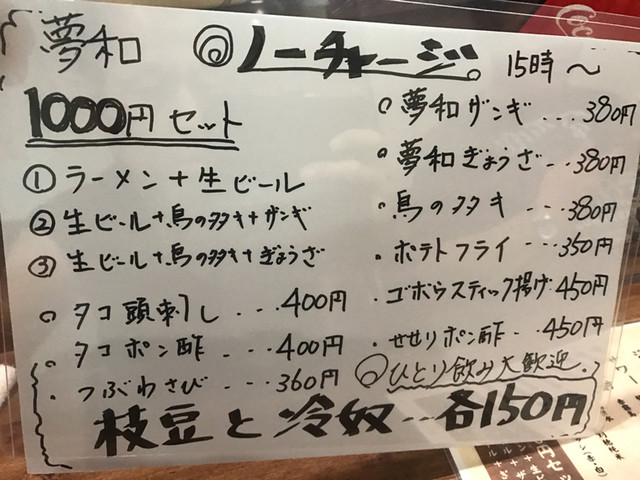 夢和 ◎ノーチャージ。 15時〜
1000円セット
①ラーメン+生ビール
②生ビール+鳥のタタキ+ザンギ
③生ビール+鳥のタタキ+ぎょうざ
○タコ頭刺し...400円
・タコポン酢...400円
・つぶわさび...360円
○夢和ザンギ...380円
・夢和ぎょうざ...380円
・鳥のタタキ...380円
・ポテトフライ...350円
・ゴボウスティック揚げ450円
・せせりポン酢...450円
◎ひとり飲み大歓迎。
枝豆と冷奴...各150円